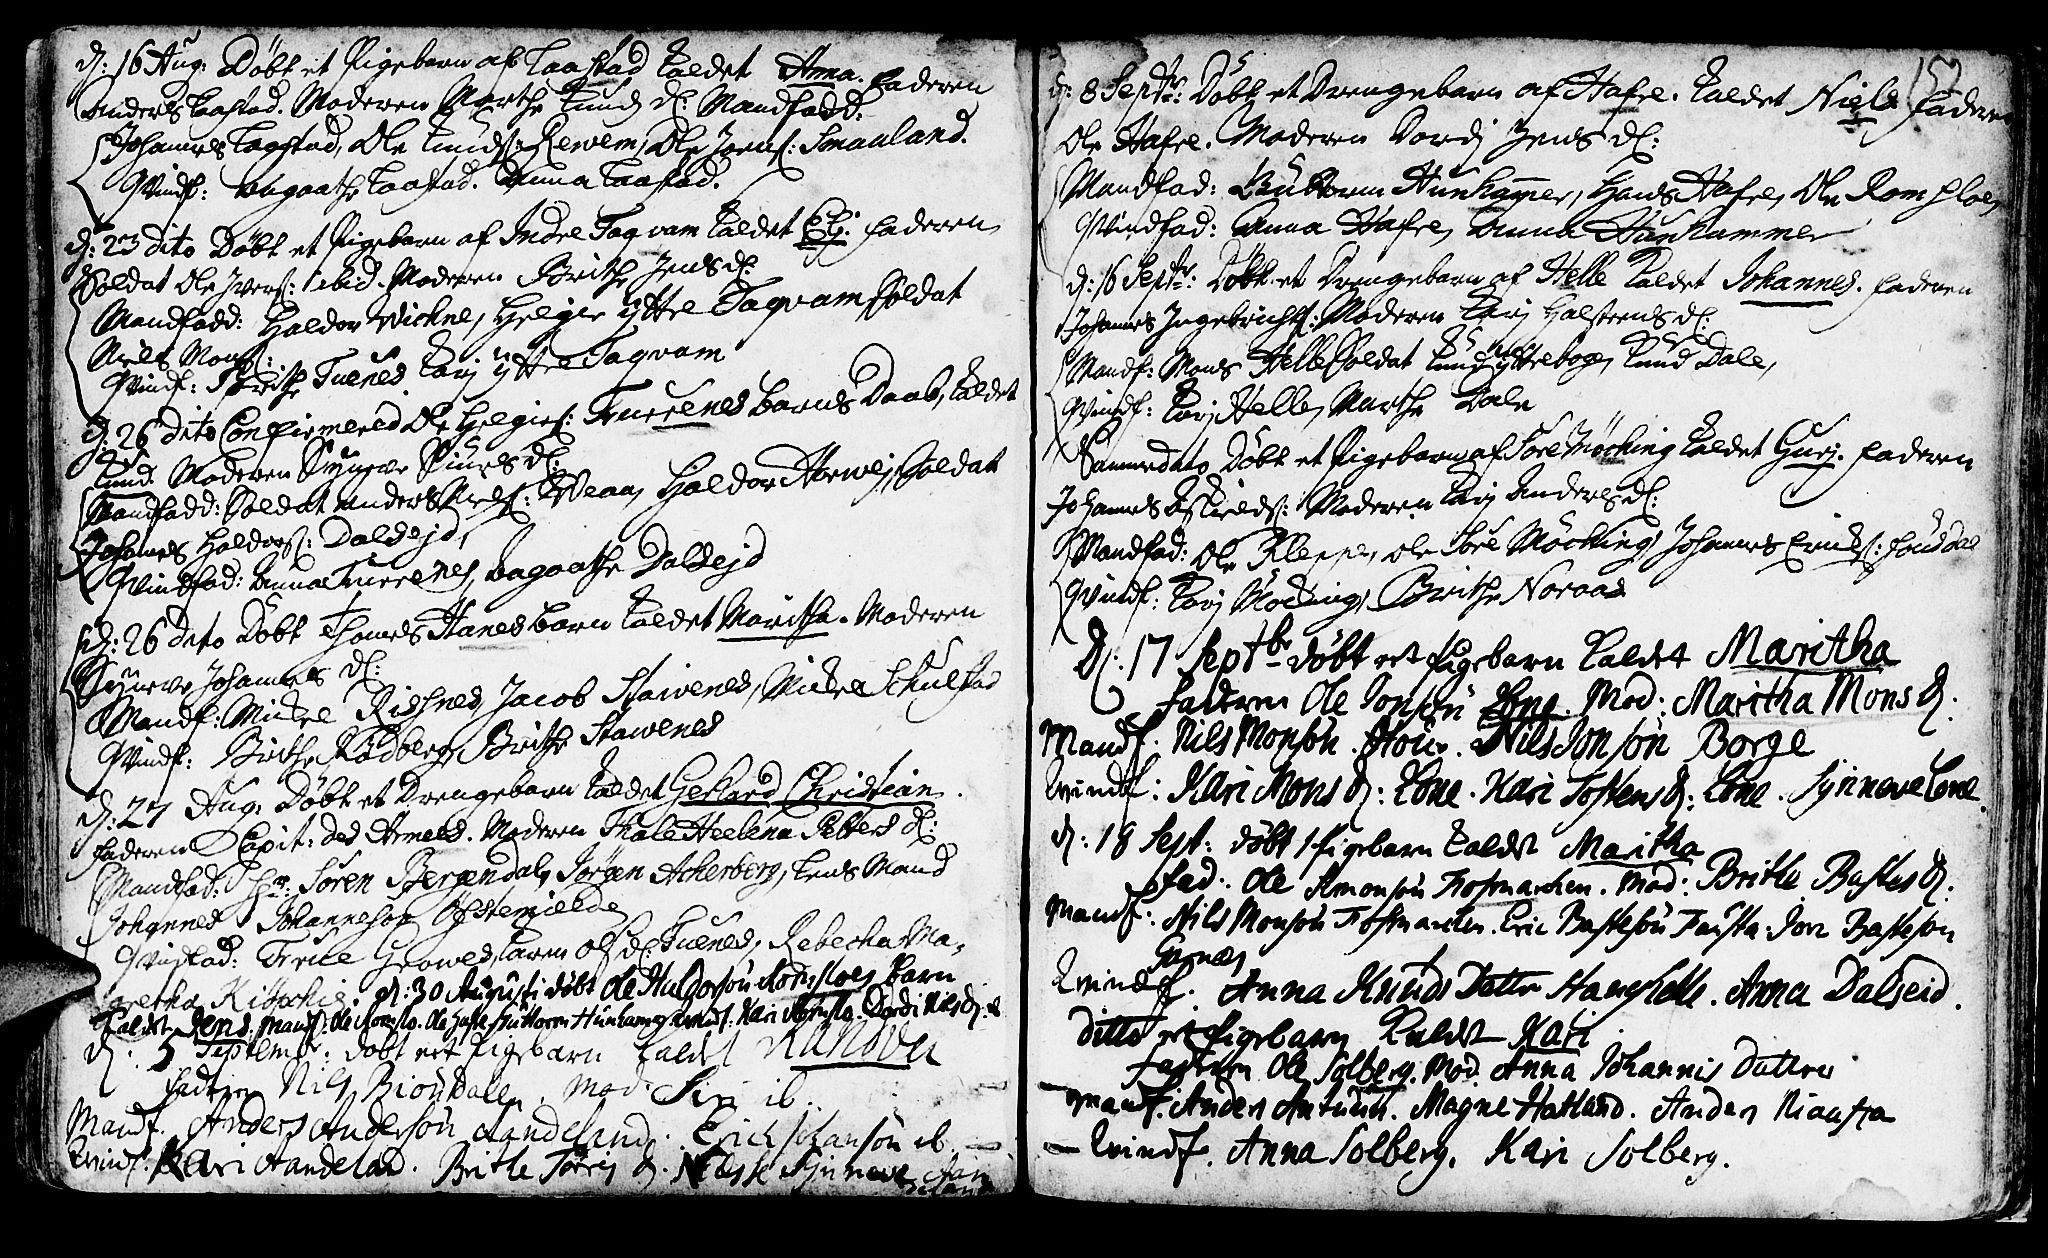 d: 16 Aug: Döbt et Pigebarn af Taastad kaldet Anna. Faderen
Anders Taastad. Moderen Marthe Knuds d: Mandfadd:
Johannes Taastad, Ole Knuds: Rewem, Ole Joens: Smaaland.
Qvindf: Aagaathe Taastad. Anna Taastad.
d: 23 dito Döbt et Pigebarn af Indre Taqvam kaldet Eli. Faderen
Soldat Ole Ivers: ibid. Moderen Brithe Jens d:
Mandfadd: Haldor Vichne, Helge yttre Taqvam Soldat
Niels Mons:
Qvindf: Brithe Tuenes. Kari yttre Taqvam
d: 26 dito Confirmered Ole Helgies: Tuerenes barns Daab, kaldet
Knud. Moderen Synneve Siurs d:
Mandfadd: Soldat Anders Niels: Haldor Horwej, Soldat
Johannes Haldors: Dalsejd,
Qvindfad: Anna Tuerenes, Aagaathe Dalsejd
d: 26 dito Döbt Thomes Hanes barn kaldet Maritha. Moderen
Synneve Johannes d:
Mandf: Mickel Risnes, Jacob Stawenes, Mickel Schulstad
Qvindf: Brithe Rödberg, Brithe Stawenes
d: 27 Aug: Döbt et Drengebarn kaldet Gerhard Christian.
Faderen Capit: des Armees. Moderen Thale Heelena Petters d:
Mandfad: Hr: Sören Bergendal, Jörgen Acherberg, Lens Mand
Johannes Johanneson
Qvindfad: Tuenes, Rebecha Ma-
gretha d: 30 Augusti döbt Ole Haldorsön Romsloes barn
kaldet Jens. Mandf: Ole Romslo. Ole Hafre Guttorm Hunhamer Kari Romslo. Dordi Nils d:
d: 5 Septembr: döbt eet Pigebarn kaldet Ranovei
Fadern Nils Biörndalen, Mod. Siri ib.
Mandf. Anders Andersön Aandeland. Erich Johansön ib
Kvindf. Kari Aandeland. Brithe d. Nilsse Synneve
152
d: 8 Septbr: Döbt et Drengebarn af Hafre. kaldet Niels Faderen
Ole Hafre. Moderen Dordi Jens d:
Mandfad: Guttorm Hunhamer, Hans Hafre, Ole Romsloe,
Qvindfad: Anna Hafre, Anna Hunhammer
d: 16 Septbr: Döbt et Drengebarn af Helle kaldet Johannes. Faderen
Johannes Ingebrichts: Moderen Kari Halsteens d:
Mandf: Mons Helle Soldat Knud yttreboe, Knud Dale,
Qvindf: Kari Helle, Marthe Dale
Sammedato Döbt et Pigebarn af Sore Möcking kaldet Guri. Faderen
Johannes Moderen Kari Anders d:
Mandfad: Ole Kleppe, Ole Sore Möcking, Johannes Erichs: Fousdal
Qvindf: Kari Möcking, Brithe Noraas
d: 17 Septbr döbt eet Pigebarn kaldet Maritha
Faderen Ole Jonsön Lone. Mod: Maritha Mons d.
Mandf. Nils Monsön. Nils Jonsön Borge
Kvindf: Kari Mons d: Lone. Kari Tostens d: Lone. Synneve Lone.
d. 18 Sept: döbt 1 Pigebarn kaldet Maritha
Fad: Ole Simonsön Trosmarchen. Mod: Brithe Bastes d.
Mandf: Nils Monsön Trosmarchen. Eric Bastesön Tausta. Jon Basteson
Garnæs
Kvindf. Anna Knuds Datter Anna Dalseid.
ditto et Pigebarn kaldet Kari
Fadern Ole Solberg. Mod. Anna Johannis Datter
Mandf. Anders Antunit. Magne Hatland. Anders
Kvindf. Anna Solberg. Kari Solberg.